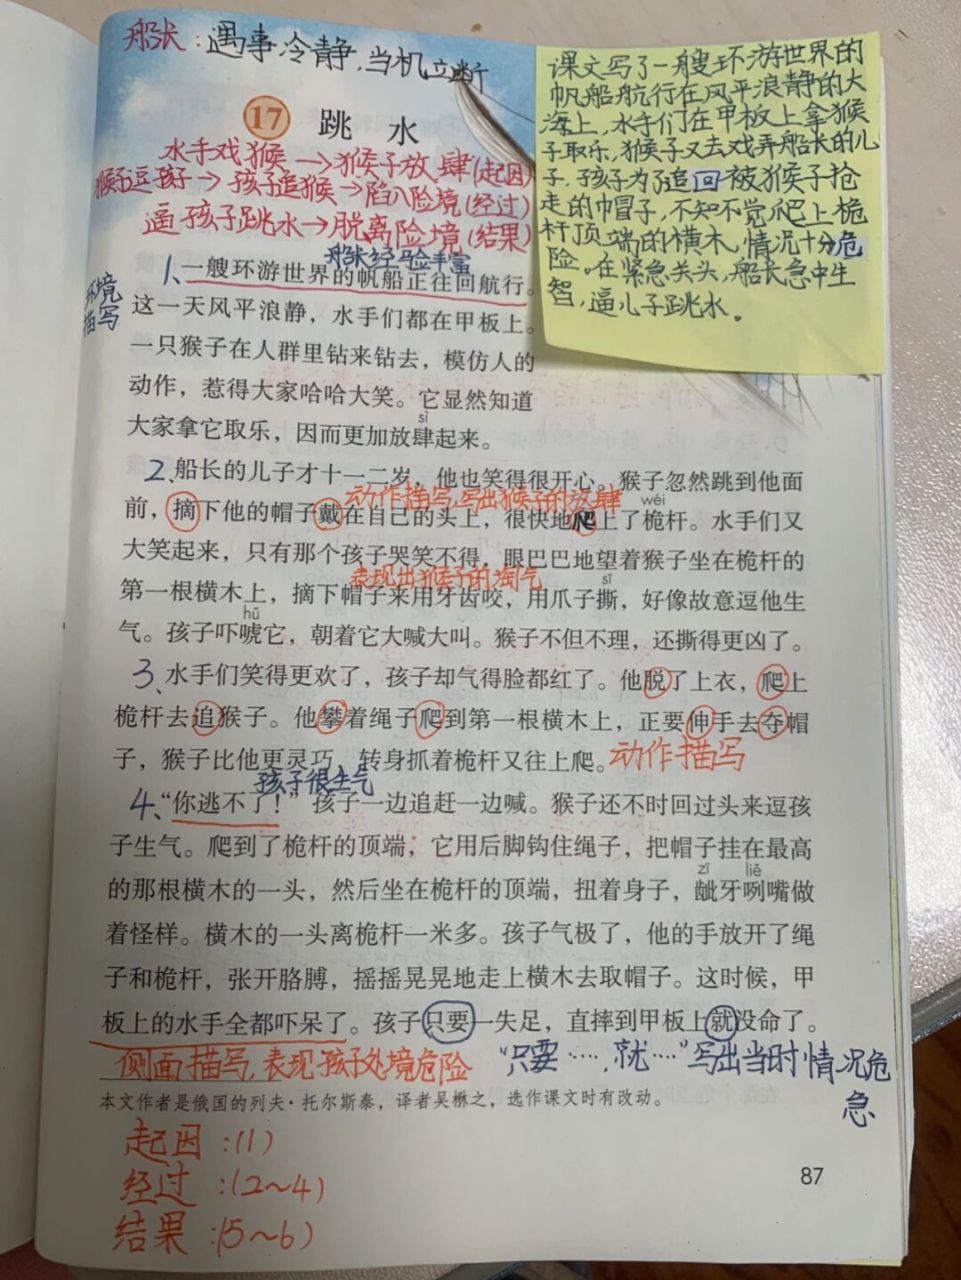 船长：遇事冷静，当机立断
17 跳水
水手戏猴→猴子放肆(起因)
猴子逗孩子→孩子追猴→陷入险境(经过)
逼孩子跳水→脱离险境(结果)
课文写了一艘环游世界的
帆船航行在风平浪静的大
海上，水手们在甲板上拿猴
子取乐，猴子又去戏弄船长的儿
子，孩子为了追回被猴子抢
走的巾帽子，不知不觉爬上桅
杆顶端的横木，情况十分危
险。在紧急关头，船长急中生
智，逼儿子跳水。
船长经验丰富
环境
描写
1、一艘环游世界的帆船正往回航行。
这一天风平浪静，水手们都在甲板上。
一只猴子在人群里钻来钻去，模仿人的
动作，惹得大家哈哈大笑。它显然知道
sì
大家拿它取乐，因而更加放肆起来。
2、船长的儿子才十一二岁，他也笑得很开心。猴子忽然跳到他面
动作描写，写出猴子的放肆
wéi
前，摘下他的帽子戴在自己的头上，很快地爬上了桅杆。水手们又
大笑起来，只有那个孩子哭笑不得，眼巴巴地望着猴子坐在桅杆的
表现出猴子的淘气
sī
第一根横木上，摘下帽子来用牙齿咬，用爪子撕，好像故意逗他生
hǔ
气。孩子吓唬它，朝着它大喊大叫。猴子不但不理，还撕得更凶了。
3、水手们笑得更欢了，孩子却气得脸都红了。他脱了上衣，爬上
桅杆去追猴子。他攀着绳子爬到第一根横木上，正要伸手去夺帽
子，猴子比他更灵巧，转身抓着桅杆又往上爬。动作描写
孩子很生气
4、“你逃不了！”孩子一边追赶一边喊。猴子还不时回过头来逗孩
子生气。爬到了桅杆的顶端，它用后脚钩住绳子，把帽子挂在最高
zī liě
的那根横木的一头，然后坐在桅杆的顶端，扭着身子，龇牙咧嘴做
着怪样。横木的一头离桅杆一米多。孩子气极了，他的手放开了绳
子和桅杆，张开胳膊，摇摇晃晃地走上横木去取帽子。这时候，甲
板上的水手全都吓呆了。孩子只要一失足，直摔到甲板上就没命了。
侧面描写，表现孩子处境危险
“只要……，就……”写出当时情况危
急
本文作者是俄国的列夫·托尔斯泰，译者吴楙之，选作课文时有改动。
起因：(1)
经过：(2~4)
结果：(5~6)
87